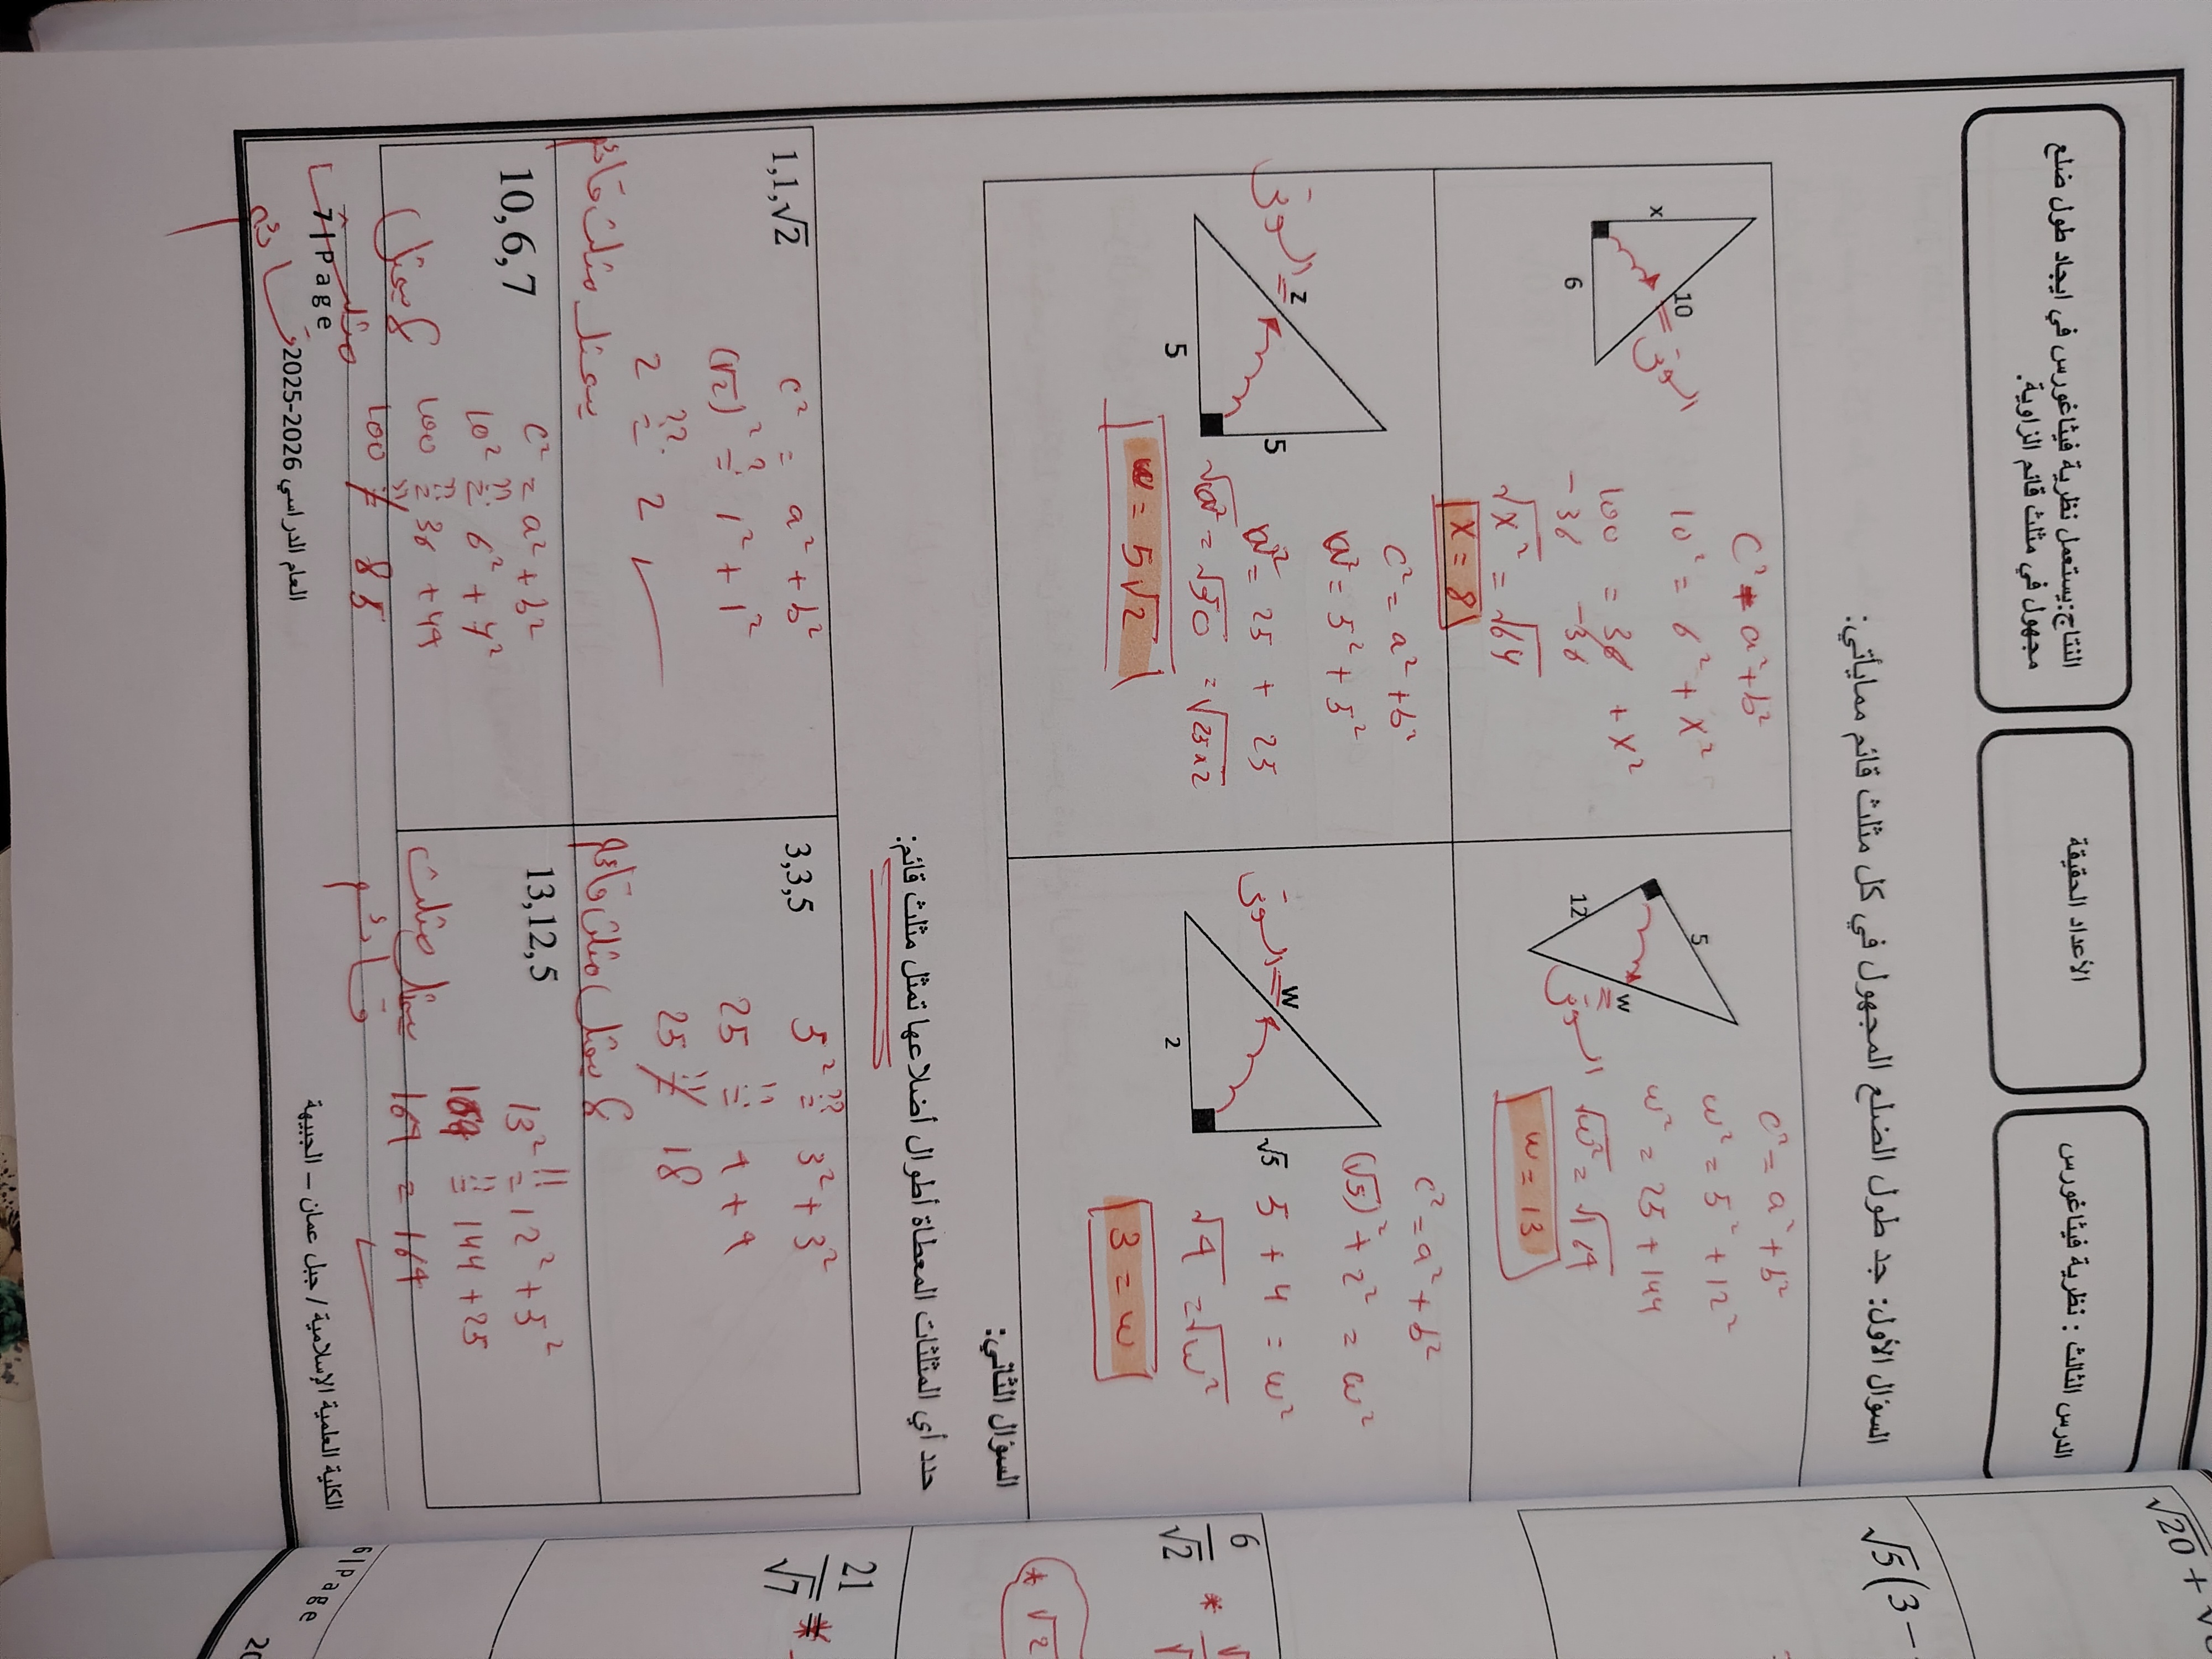 الدرس الثالث : نظرية فيثاغورس
الأعداد الحقيقة
النتاج:يستعمل نظرية فيثاغورس في ايجاد طول ضلع
مجهول في مثلث قائم الزاوية.
السؤال الأول: جد طول الضلع المجهول في كل مثلث قائم ممايأتي:
x
10
6
الوتر
c² = a² + b²
10² = 6² + x²
100 = 36 + x²
-36 -36
√x² = √64
x = 8
5
12
w
الوتر
c² = a² + b²
w² = 5² + 12²
w² = 25 + 144
√w² = √169
w = 13
z
5
5
الوتر
c² = a² + b²
w² = 5² + 5²
w² = 25 + 25
√w² = √50 = √25x2
w = 5√2
w
2
√5
الوتر
c² = a² + b²
(√5)² + 2² = w²
5 + 4 = w²
√9 = √w²
3 = w
السؤال الثاني:
حدد أي المثلثات المعطاة أطوال أضلاعها تمثل مثلث قائم:
1,1,√2
c² = a² + b²
(√2)² ≟ 1² + 1²
2 ≟ 2
يمثل مثلث قائم
3,3,5
5² ≟ 3² + 3²
25 ≟ 9 + 9
25 ≠ 18
لا يمثل مثلث قائم
10,6,7
c² = a² + b²
10² ≟ 6² + 7²
100 ≟ 36 + 49
100 ≠ 85
لا يمثل
مثلث
قائم
13,12,5
13² ≟ 12² + 5²
169 ≟ 144 + 25
169 = 169
يمثل مثلث
قائم
7 | Page
العام الدراسي 2025-2026
الكلية العلمية الإسلامية / جبل عمان – الجبيهة
√20 +
√5(3 –
6/√2 *
* √2
21/√7 = *
6 | Page